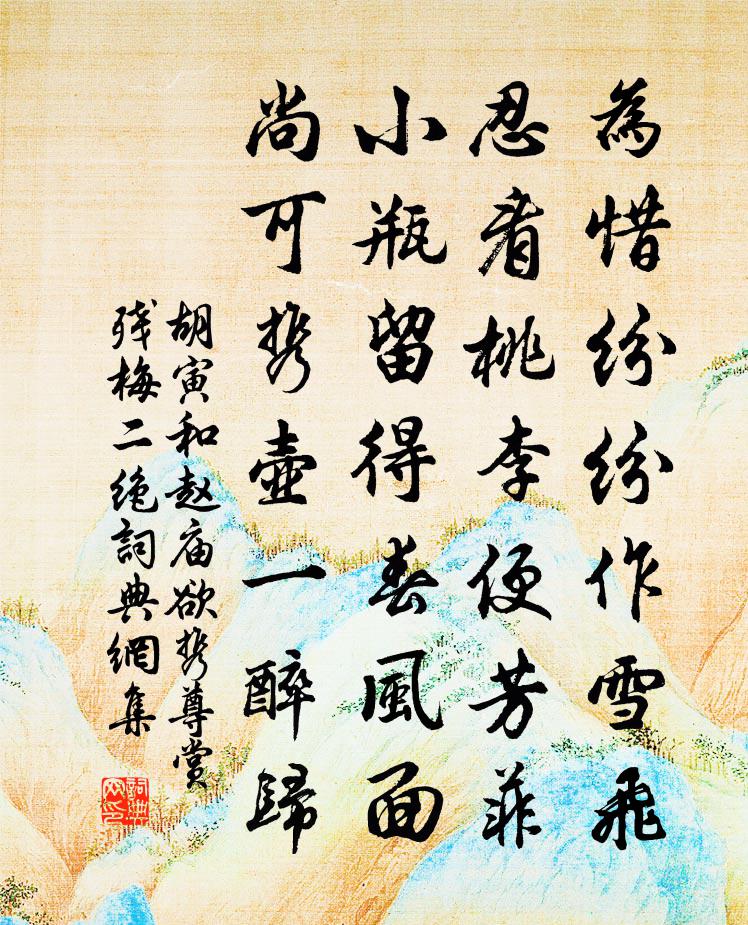 為惜紛紛作雪飛
忍看桃李便芳菲
小瓶留得春風面
尚可携壺一醉歸
胡寅和赵庙欲携尊赏
残梅二绝詞典網集
詞典